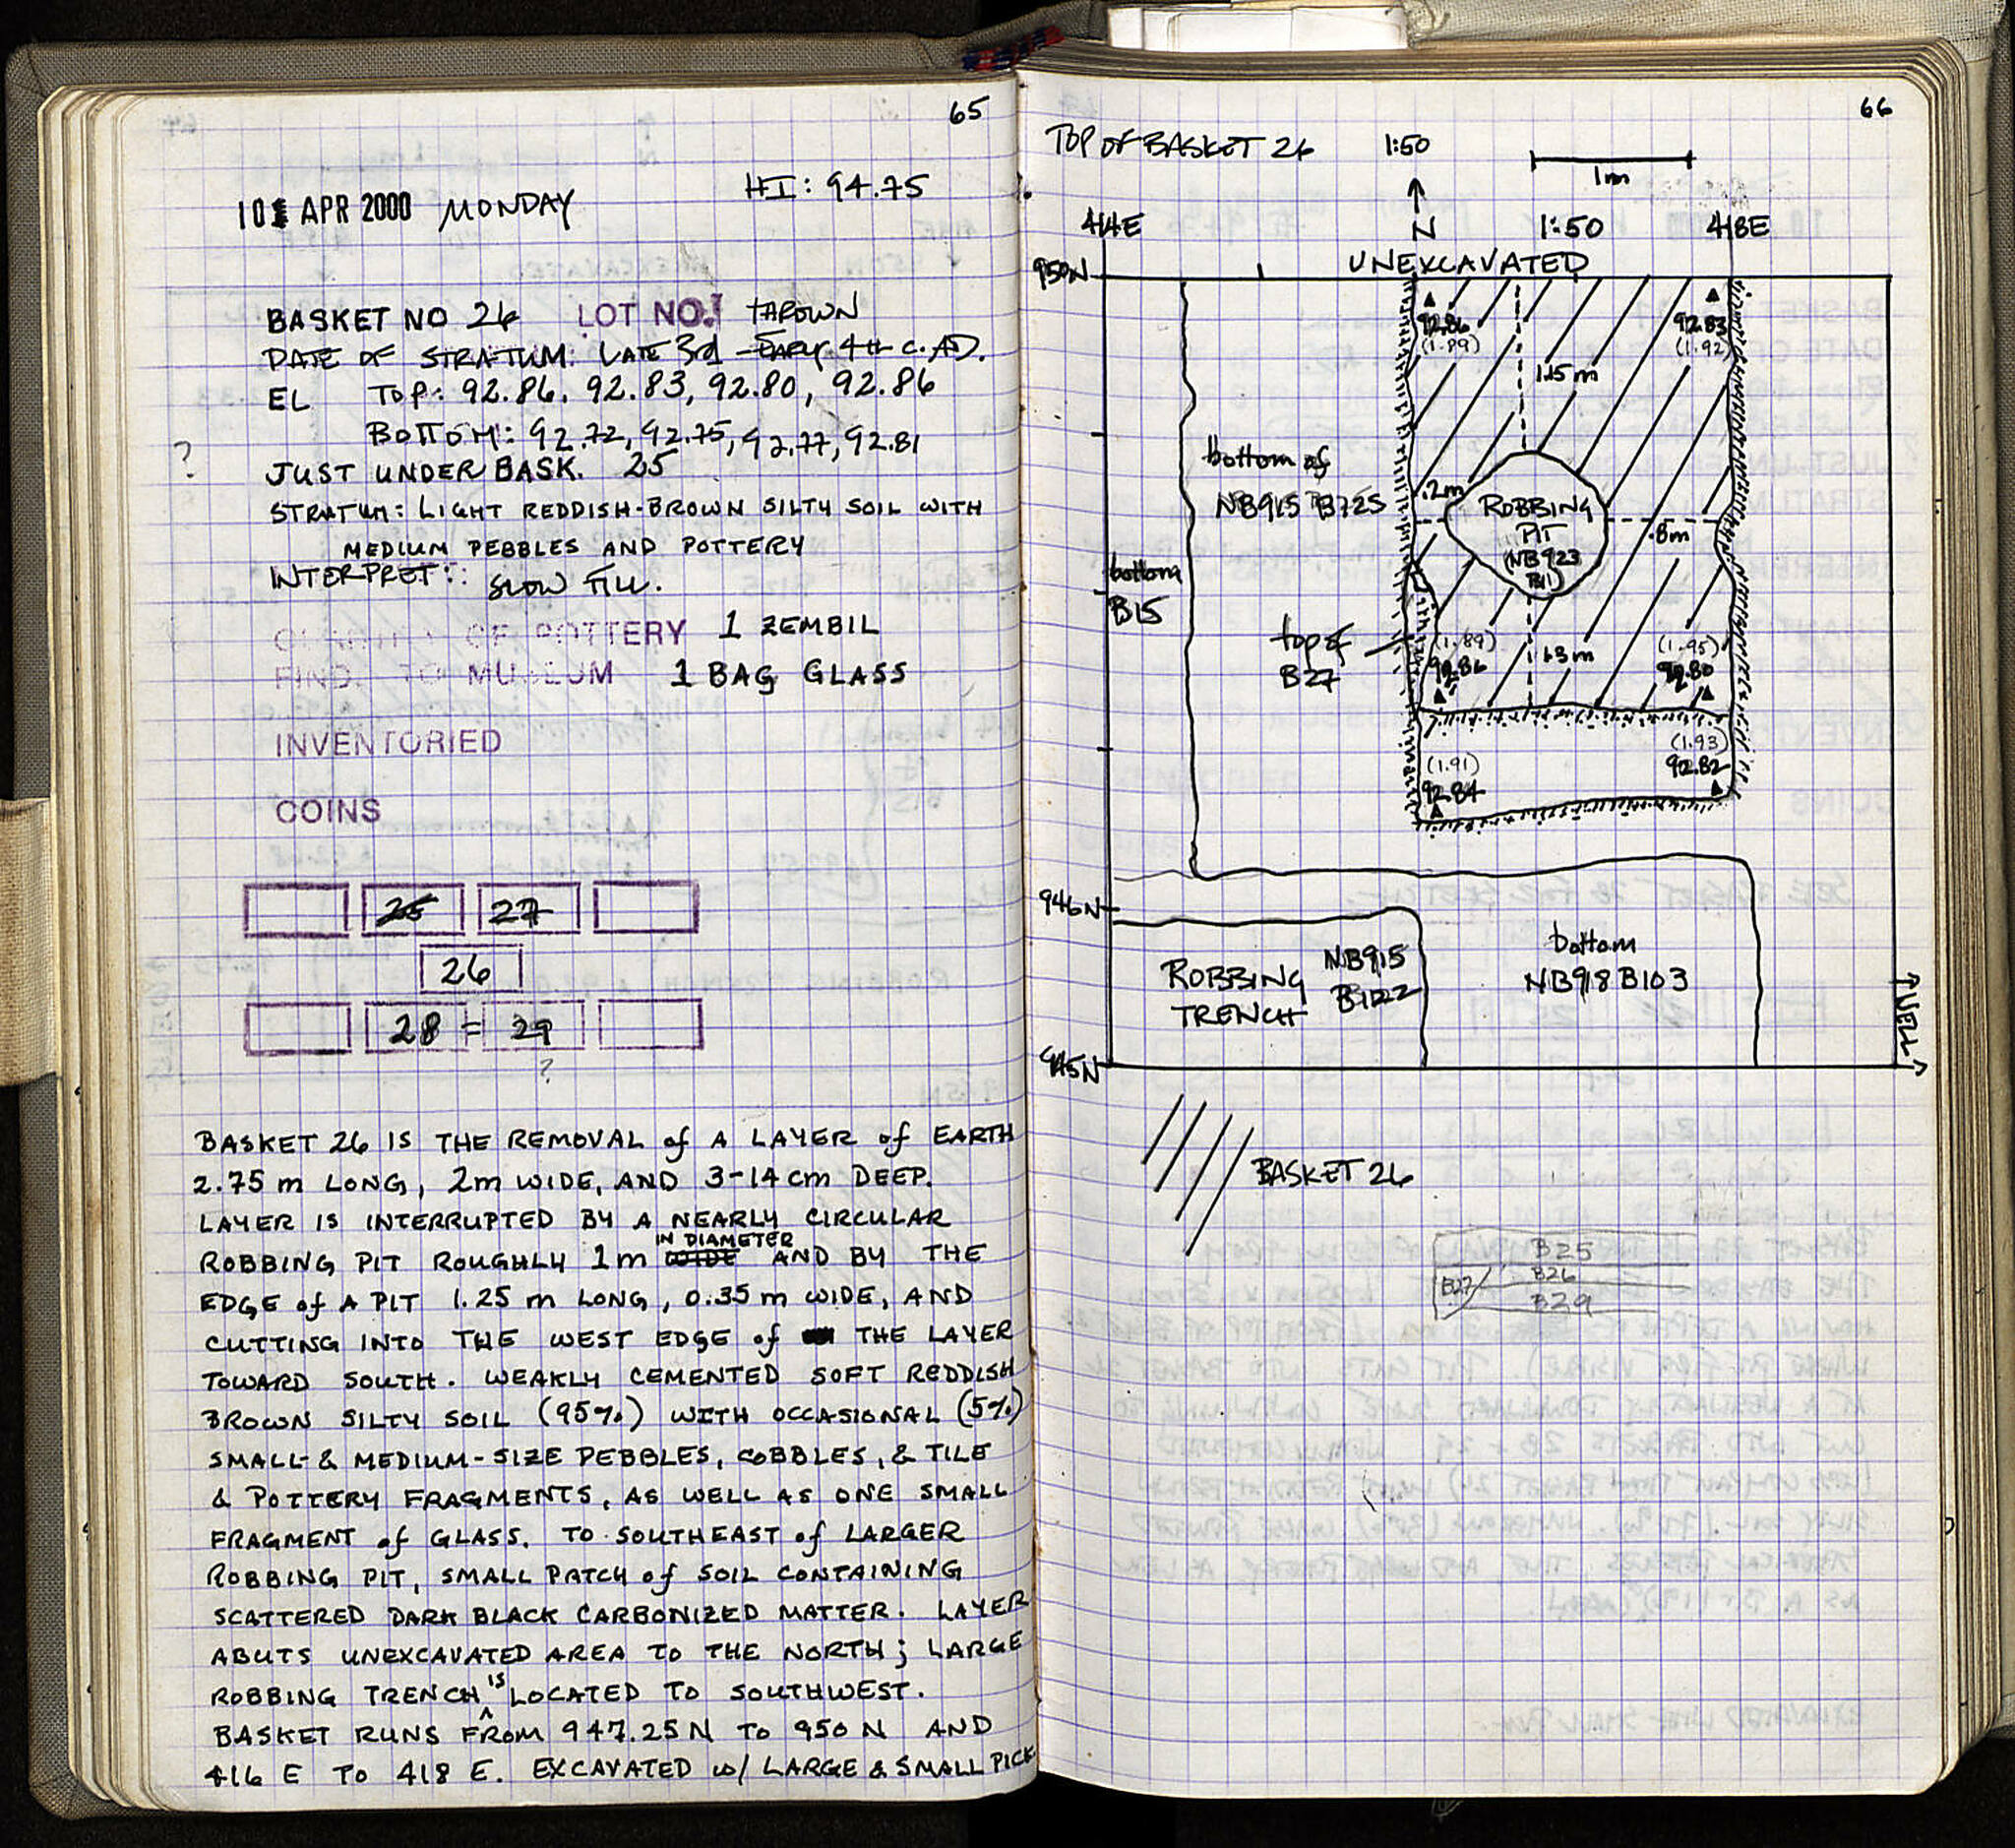 65
10 APR 2000 MONDAY
HI: 94.75
BASKET NO 26 LOT NO. THROWN
DATE OF STRATUM: LATE 3rd - EARLY 4th C. AD.
EL TOP: 92.86, 92.83, 92.80, 92.86
BOTTOM: 92.72, 92.75, 92.77, 92.81
?
JUST UNDER BASK. 25
STRATUM: LIGHT REDDISH-BROWN SILTY SOIL WITH
MEDIUM PEBBLES AND POTTERY
INTERPRET: SLOW FILL.
QUANTITY OF POTTERY 1 ZEMBIL
FIND. TO MUSEUM 1 BAG GLASS
INVENTORIED
COINS
25 27
26
28 = 29
?
BASKET 26 IS THE REMOVAL of A LAYER of EARTH
2.75 m LONG, 2m WIDE, AND 3-14 cm DEEP.
LAYER IS INTERRUPTED BY A NEARLY CIRCULAR
ROBBING PIT ROUGHLY 1m WIDE IN DIAMETER AND BY THE
EDGE of A PIT 1.25 m LONG, 0.35 m WIDE, AND
CUTTING INTO THE WEST EDGE of THE LAYER
TOWARD SOUTH. WEAKLY CEMENTED SOFT REDDISH
BROWN SILTY SOIL (95%) WITH OCCASIONAL (5%)
SMALL- & MEDIUM-SIZE PEBBLES, COBBLES, & TILE
& POTTERY FRAGMENTS, AS WELL AS ONE SMALL
FRAGMENT of GLASS. TO SOUTHEAST of LARGER
ROBBING PIT, SMALL PATCH of SOIL CONTAINING
SCATTERED DARK BLACK CARBONIZED MATTER. LAYER
ABUTS UNEXCAVATED AREA TO THE NORTH; LARGE
ROBBING TRENCH IS LOCATED TO SOUTHWEST.
BASKET RUNS FROM 947.25 N TO 950 N AND
416 E TO 418 E. EXCAVATED w/ LARGE & SMALL PICK.
66
TOP OF BASKET 26 1:50
1m
414E N 1:50 418E
950N UNEXCAVATED
92.86 92.83
(1.89) (1.92)
1.15 m
bottom of
NB915 B725
.2m
ROBBING
PIT
(NB923
B11)
.8m
bottom
B15
top of
B27
(1.89) (1.95)
92.86 1.3 m 92.80
(1.93)
92.82
(1.91)
92.84
946N
ROBBING
TRENCH
NB915
B122
bottom
NB918 B103
WELL
945N
BASKET 26
B25
B27 B26
B29